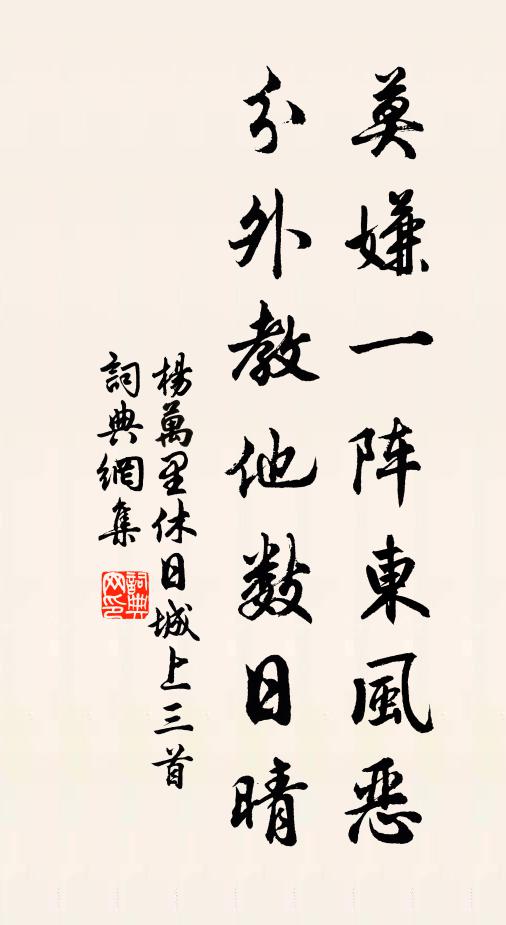 莫嫌一阵東風恶
分外教他数日晴
楊萬里休日城上三首
詞典網集
詞典网印